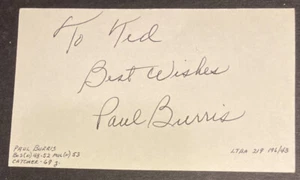 To Ted
Best Wishes
Paul Burris
PAUL BURRIS
BOS(N) 48-52 MIL(N) 53
CATCHER - 69 g.
LTRA 219 196/43